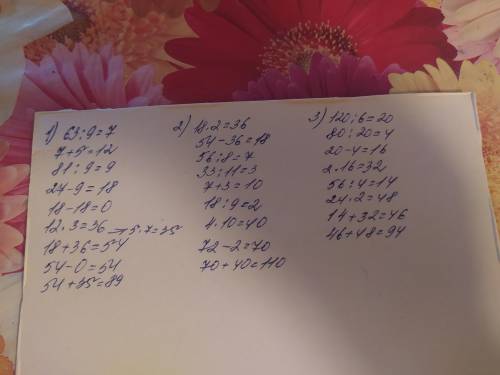 1) 63:9=7
7+5=12
81:9=9
27-9=18
18-18=0
12.3=36 →5.7=35
18+36=54
54-0=54
54+35=89
2) 18.2=36
54-36=18
56:8=7
33:11=3
7+3=10
18:9=2
4.10=40
72-2=70
70+40=110
3) 120:6=20
80:20=4
20-4=16
2.16=32
56:4=14
24.2=48
14+32=46
46+48=94